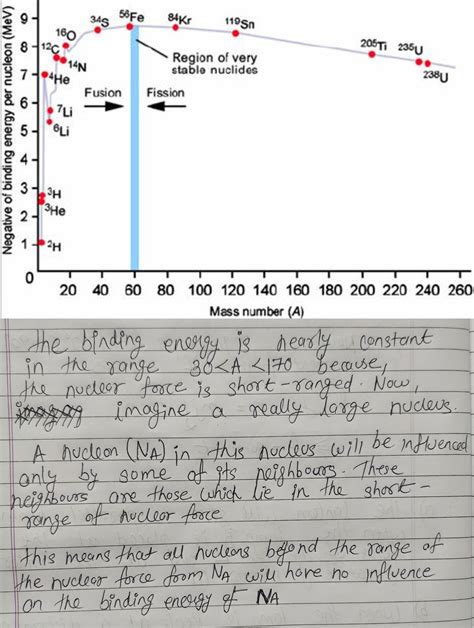 Negative of binding energy per nucleon (MeV)
9
8
7
6
5
4
3
2
1
0
56Fe
34S
84Kr
119Sn
16O
12C
14N
205Ti
235U
238U
4He
7Li
6Li
3H
3He
2H
Region of very
stable nuclides
Fusion
Fission
20 40 60 80 100 120 140 160 180 200 220 240 260
Mass number (A)
the binding energy is nearly constant
in the range 30<A<170 because,
the nuclear force is short-ranged. Now,
imagine a really large nucleus.
A nucleon (NA) in this nucleus will be influenced
only by some of its neighbours. These
neighbours are those which lie in the short-
range of nuclear force
this means that all nucleons beyond the range of
the nuclear force from NA will have no influence
on the binding energy of NA